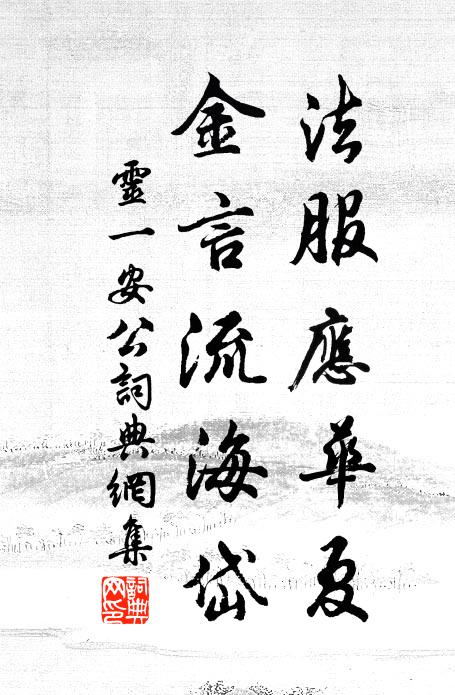 法服應華夏
金言流海岱
靈一安公詞典網集
詞典网印